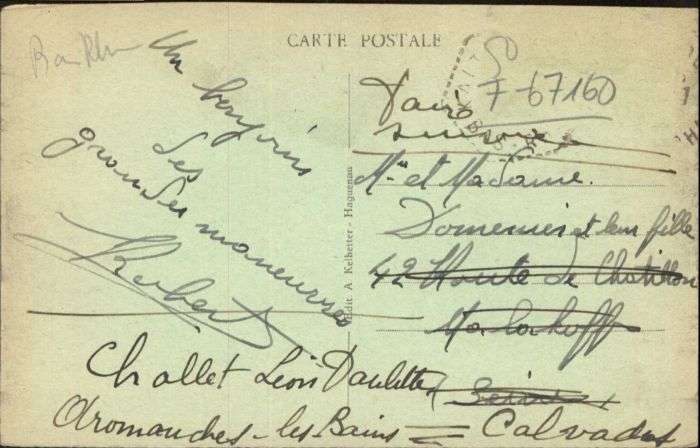 CARTE POSTALE
Bas Rhin
Un bonjour
des
grandes maneuvres
Robert
Edit. A Kelbetter - Haguenau
7-67160
Faire
suivre
Mr et Madame
Domenier et leur fille
42 Route de Chatillon
Malakoff
Seine
Challet Léon Paulette
Aromanches-les Bains = Calvados